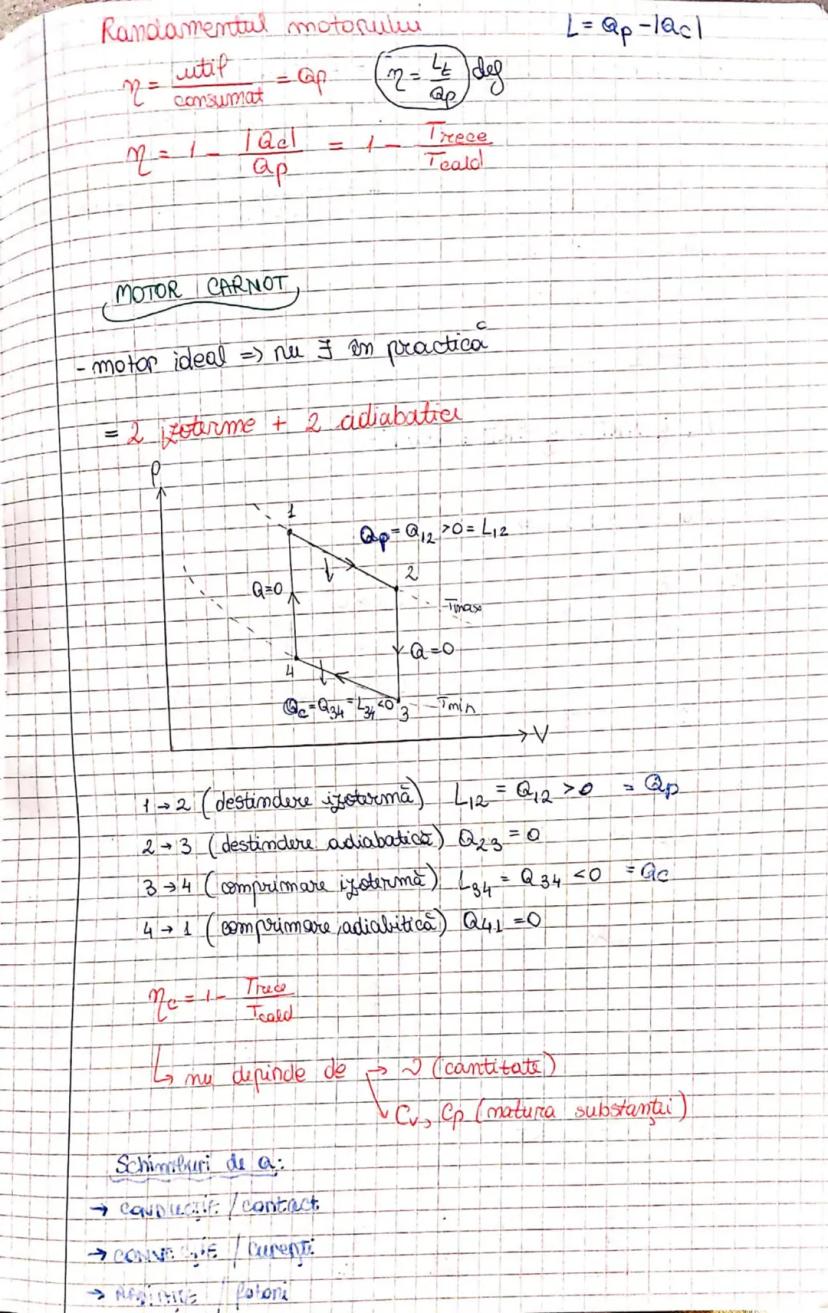 Randamentul motorului L = Qp - |Qc|
η = util/consumat = Qp η = Lt/Qp def
η = 1 - |Qc|/Qp = 1 - Trece/Tcald
MOTOR CARNOT
- motor ideal => nu ∃ în practică
= 2 izoterme + 2 adiabatici
P
1
Qp = Q12 > 0 = L12
2
Q=0
Tmax
Q=0
4
Qc = Q34 = L34 < 0
3
Tmin
V
1 → 2 (destindere izotermă) L12 = Q12 > 0 = Qp
2 → 3 (destindere adiabatică) Q23 = 0
3 → 4 (comprimare izotermă) L34 = Q34 < 0 = Qc
4 → 1 (comprimare adiabitică) Q41 = 0
ηc = 1 - Trece/Tcald
↳ nu depinde de → ν (cantitate)
↘ Cv, Cp (natura substanței)
Schimburi de Q:
→ conducție / contact
→ convecție / curenți
→ / fotoni